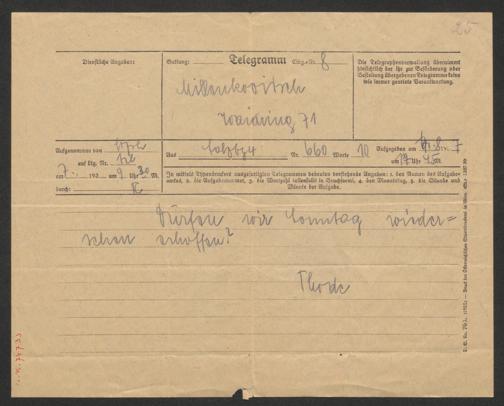 25
Dienstliche Angaben:
Gattung: Telegramm Eing.-Nr. 8
Die Telegraphenverwaltung übernimmt
hinsichtlich der ihr zur Beförderung oder
Bestellung übergebenen Telegramme keine
wie immer geartete Verantwortung.
Millenkovitsch
Waidring 71
Aufgenommen von
auf Ltg. Nr.
am 7. 192 um 9 Uhr 30 M.
durch:
Aus Salzbg 4 Nr. 660 Worte 10
Aufgegeben am 7
um Uhr M.
In mittels Typendruckers ausgefertigten Telegrammen bedeuten vorstehende Angaben: 1. den Namen des Aufgabe-
amtes, 2. die Aufgabenummer, 3. die Wortzahl (allenfalls in Bruchform), 4. den Monatstag, 5. die Stunde und
Minute der Aufgabe.
Dürfen wir Sonntag wieder=
sehen erhoffen?
Thode